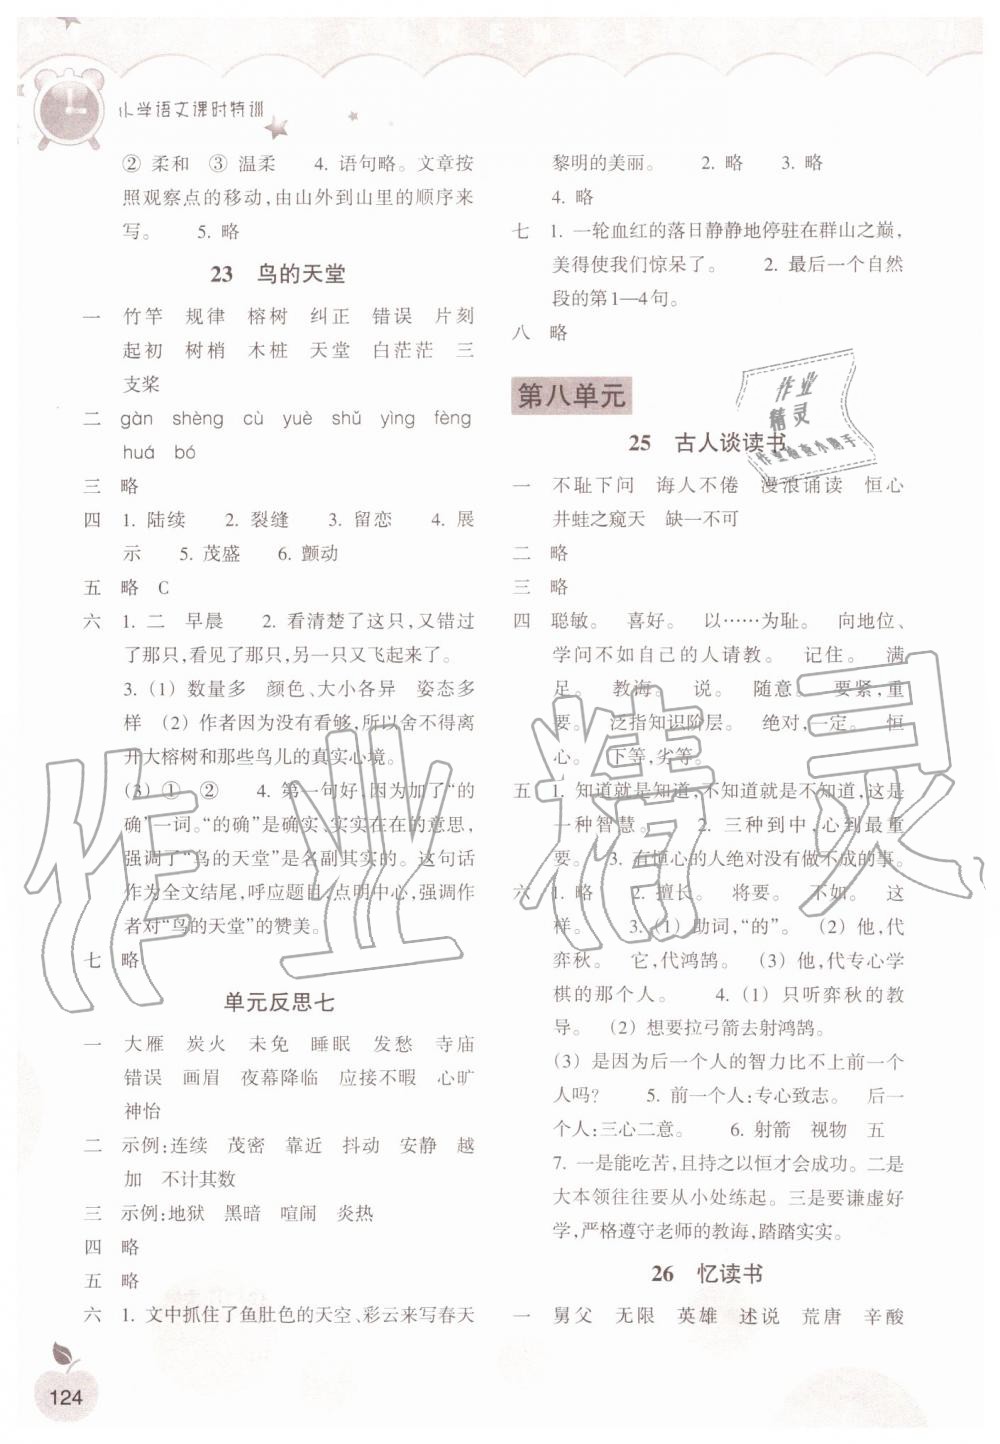 小学语文课时特训
② 柔和　③ 温柔　4. 语句略。文章按
照观察点的移动,由山外到山里的顺序来
写。　5. 略
23　鸟的天堂
一　竹竿　规律　榕树　纠正　错误　片刻
起初　树梢　木桩　天堂　白茫茫　三
支桨
二　gàn　shèng　cù　yuè　shǔ　yìng　fèng
huá　bó
三　略
四　1. 陆续　2. 裂缝　3. 留恋　4. 展
示　5. 茂盛　6. 颤动
五　略　C
六　1. 二　早晨　2. 看清楚了这只,又错过
了那只,看见了那只,另一只又飞起来了。
3. (1) 数量多　颜色、大小各异　姿态多
样　(2) 作者因为没有看够,所以舍不得离
开大榕树和那些鸟儿的真实心境。
(3) ①　②　4. 第一句好,因为加了“的
确”一词。“的确”是确实、实实在在的意思,
强调了“鸟的天堂”是名副其实的。这句话
作为全文结尾,呼应题目,点明中心,强调作
者对“鸟的天堂”的赞美。
七　略
单元反思七
一　大雁　炭火　未免　睡眠　发愁　寺庙
错误　画眉　夜幕降临　应接不暇　心旷
神怡
二　示例:连续　茂密　靠近　抖动　安静　越
加　不计其数
三　示例:地狱　黑暗　喧闹　炎热
四　略
五　略
六　1. 文中抓住了鱼肚色的天空、彩云来写春天
黎明的美丽。　2. 略　3. 略
4. 略
七　1. 一轮血红的落日静静地停驻在群山之巅,
美得使我们惊呆了。　2. 最后一个自然
段的第1—4句。
八　略
第八单元
25　古人谈读书
一　不耻下问　诲人不倦　漫浪诵读　恒心
井蛙之窥天　缺一不可
二　略
三　略
四　聪敏。　喜好。　以……为耻。　向地位、
学问不如自己的人请教。　记住。　满
足。　教诲。　说。　随意。　要紧,重
要。　泛指知识阶层。　绝对,一定。　恒
心。　下等,劣等。
五　1. 知道就是知道,不知道就是不知道,这是
一种智慧。　2. 三种到中,心到最重
要。　3. 有恒心的人绝对没有做不成的事。
六　1. 略　2. 擅长。　将要。　不如。　这
样。　3. (1) 助词,“的”。　(2) 他,代
弈秋。　它,代鸿鹄。　(3) 他,代专心学
棋的那个人。　4. (1) 只听弈秋的教
导。　(2) 想要拉弓箭去射鸿鹄。
(3) 是因为后一个人的智力比不上前一个
人吗?　5. 前一个人:专心致志。　后一
个人:三心二意。　6. 射箭　视物　五
7. 一是能吃苦,且持之以恒才会成功。二是
大本领往往要从小处练起。三是要谦虚好
学,严格遵守老师的教诲,踏踏实实。
26　忆读书
一　舅父　无限　英雄　述说　荒唐　辛酸
124
作业
精灵
作业检查小助手
作业精灵